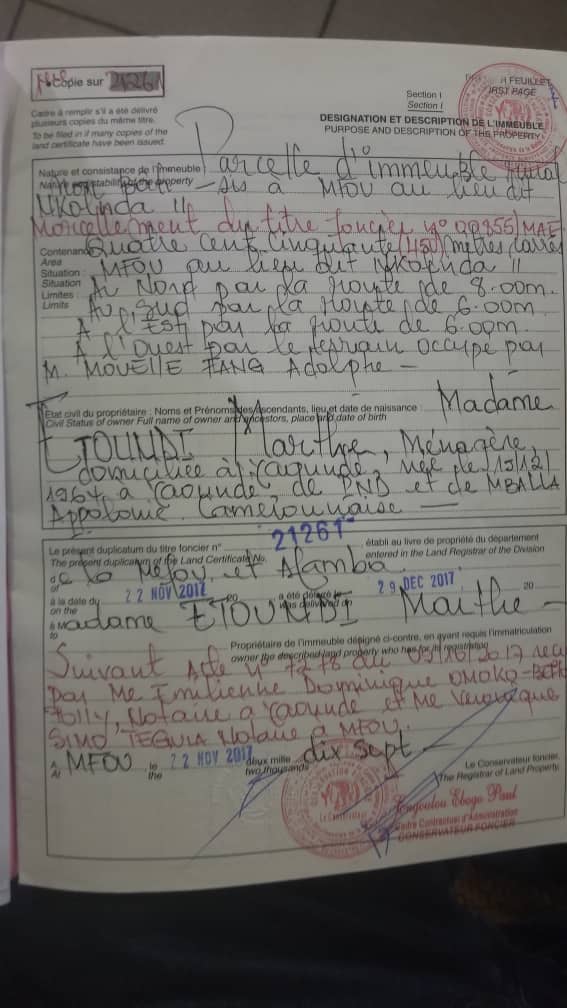 Copie sur 21261
1ere FEUILLET
FIRST PAGE
Section I
Section I
Cadre à remplir s'il a été délivré
plusieurs copies du même titre.
To be filled in if many copies of the
land certificate have been issued.
DESIGNATION ET DESCRIPTION DE L'IMMEUBLE
PURPOSE AND DESCRIPTION OF THE PROPERTY
Nature et consistance de l'immeuble : Parcelle d'immeuble rural
Nature of the property
non bâti - sis à Mfou au lieu dit
Nkolnda II
Morcellement du titre foncier n° 00855/MAE
Contenance Quatre cent cinquante (450) mètres carrés
Area
Situation : MFOU au lieu dit Nkolnda II
Situation
Limites : Au Nord par la route de 8.00m.
Limits
Au Sud par la route de 6.00m
A l'Est par la route de 6.00m.
A l'Ouest par le terrain occupé par
M. MOUELLE TANG Adolphe —
Etat civil du propriétaire : Noms et Prénoms des Ascendants, lieu et date de naissance : Madame
Civil Status of owner Full name of owner and ancestors, place and date of birth
ETOUNDI Marthe, Ménagère,
domiciliée à Yaoundé, née le 15/12/
1964 à Yaoundé, de PND et de MBALLA
Appolonie. Camerounaise —
Le présent duplicatum du titre foncier n° 21261 établi au livre de propriété du département
The present duplicatum of the Land Certificate No. entered in the Land Registrar of the Division
de la Mefou et Afamba
of
à la date du 22 NOV 2017 a été délivré le 29 DEC 2017 20
on the was delivered on
à Madame ETOUNDI Marthe —
to
Propriétaire de l'immeuble désigné ci-contre, en ayant requis l'immatriculation
owner the described land property who has for its registration
Suivant Acte n° 7278 du 09/10/2017 reçu
par Me Emilienne Dominique OMOKO-
Folly, Notaire à Yaoundé et Me Véronique
SIMO TEGUIA Notaire à MFOU.
A MFOU le 22 NOV 2017 deux mille dix sept —
At the two thousands
Le Conservateur foncier,
The Registrar of Land Property,
Le Conservateur
Engoulou Ebogo Paul
Cadre Contractuel d'Administration
CONSERVATEUR FONCIER